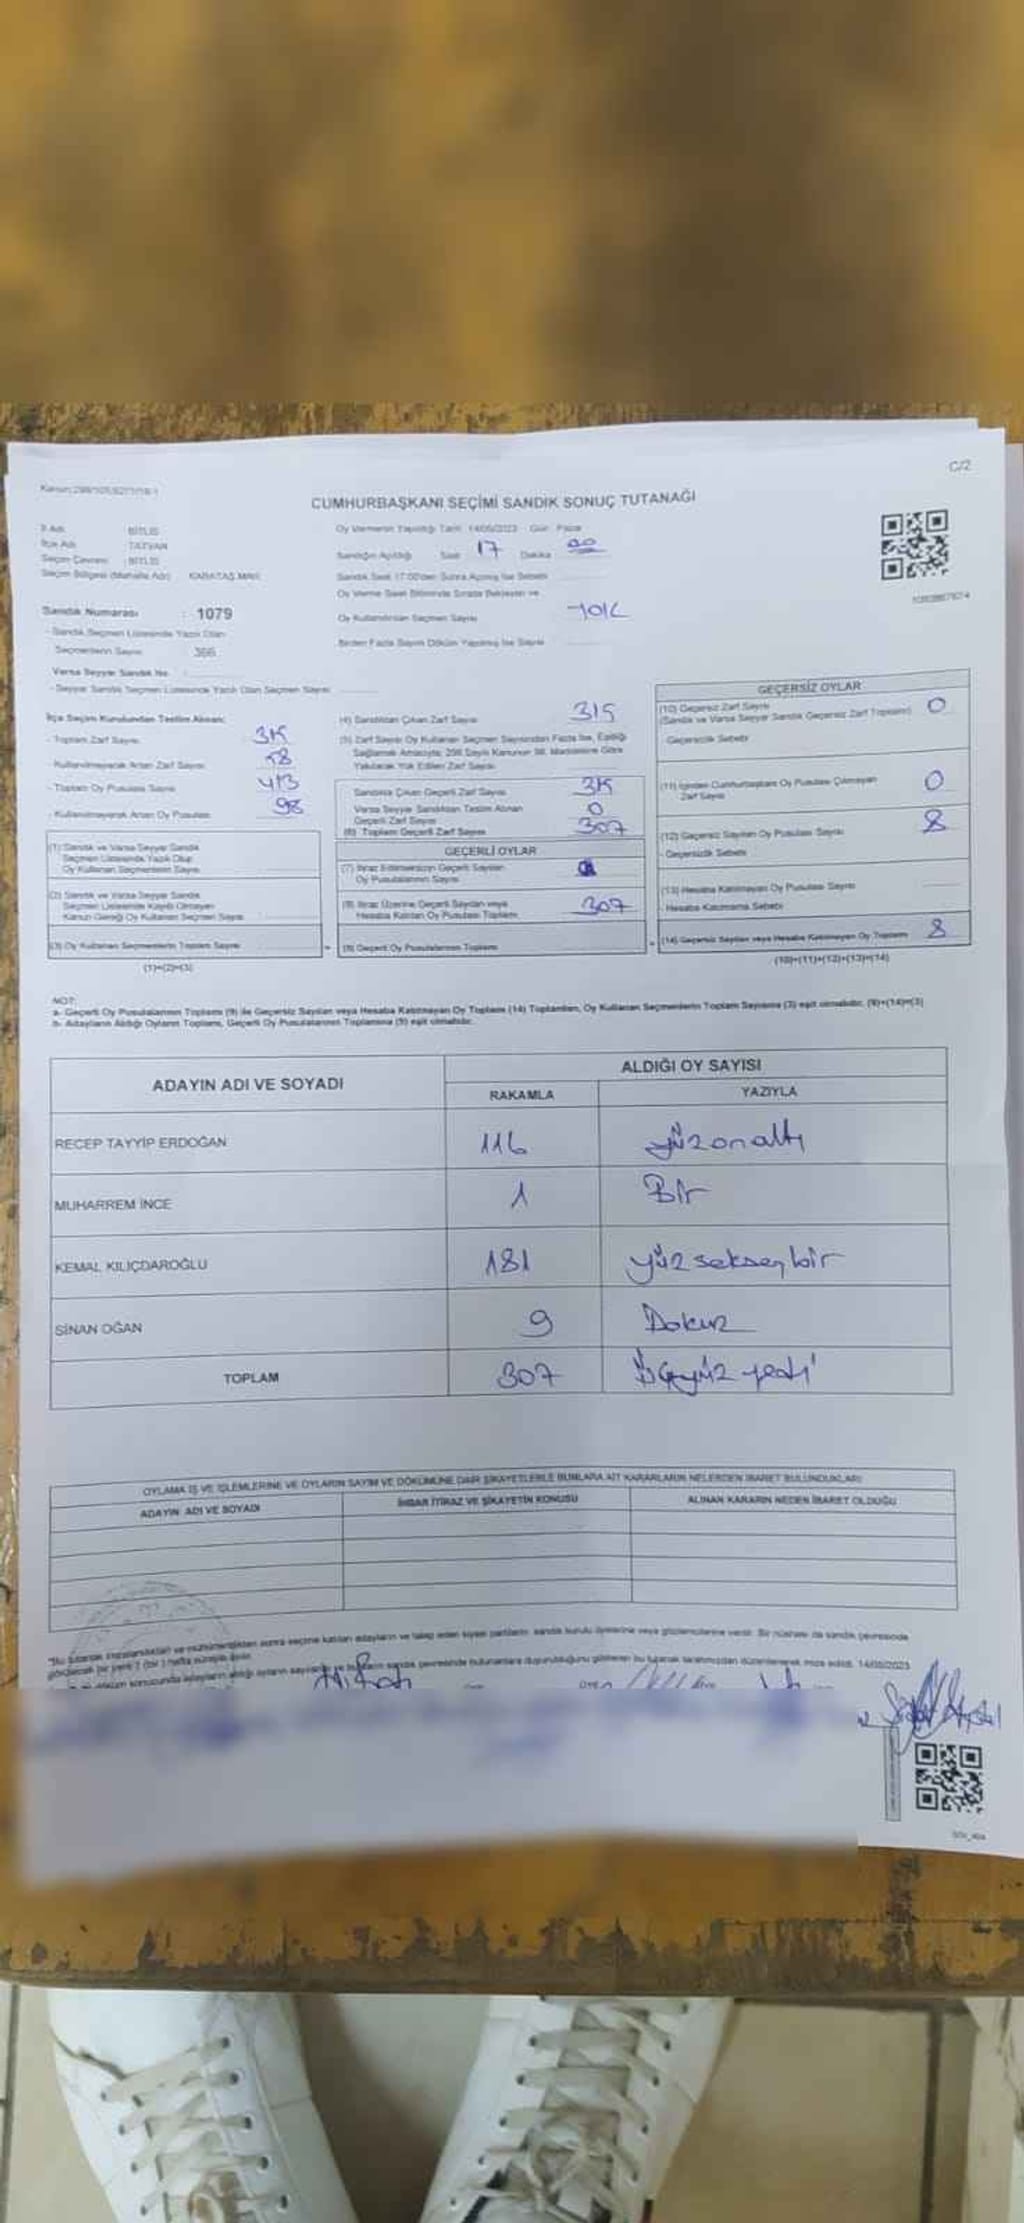 C/2
CUMHURBAŞKANI SEÇİMİ SANDIK SONUÇ TUTANAĞI
İl Adı : BİTLİS
İlçe Adı : TATVAN
Seçim Çevresi : BİTLİS
Seçim Bölgesi (Mahalle Adı) : KARATAŞ MAH.
Oy Vermenin Yapıldığı Tarih : 14/05/2023 Gün : Pazar
Sandığın Açıldığı Saat 17 Dakika 00
Sandık Saat 17:00'den Sonra Açılmış İse Sebebi
Oy Verme Saati Bitiminde Sırada Bekleyen ve
Oy Kullandırılan Seçmen Sayısı
Birden Fazla Sayım Döküm Yapılmış İse Sayısı
Sandık Numarası : 1079
- Sandık Seçmen Listesinde Yazılı Olan
Seçmenlerin Sayısı : 366
Varsa Seyyar Sandık No
- Seyyar Sandık Seçmen Listesinde Yazılı Olan Seçmen Sayısı
İlçe Seçim Kurulundan Teslim Alınan:
- Toplam Zarf Sayısı
- Kullanılmayarak Artan Zarf Sayısı
- Toplam Oy Pusulası Sayısı 413
- Kullanılmayarak Artan Oy Pusulası 98
(1) Sandık ve Varsa Seyyar Sandık
Seçmen Listesinde Yazılı Olup
Oy Kullanan Seçmenlerin Sayısı
(2) Sandık ve Varsa Seyyar Sandık
Seçmen Listesinde Kayıtlı Olmayan
Kanun Gereği Oy Kullanan Seçmen Sayısı
(3) Oy Kullanan Seçmenlerin Toplam Sayısı
(1)+(2)=(3)
(4) Sandıktan Çıkan Zarf Sayısı 315
(5) Zarf Sayısı Oy Kullanan Seçmen Sayısından Fazla İse, Eşitliği
Sağlamak Amacıyla, 298 Sayılı Kanunun 98. Maddesine Göre
Yakılarak Yok Edilen Zarf Sayısı
Sandıkta Çıkan Geçerli Zarf Sayısı 315
Varsa Seyyar Sandıktan Teslim Alınan
Geçerli Zarf Sayısı 0
(6) Toplam Geçerli Zarf Sayısı 307
GEÇERLİ OYLAR
(7) İtiraz Edilmeksizin Geçerli Sayılan
Oy Pusulalarının Sayısı
(8) İtiraz Üzerine Geçerli Sayılan veya
Hesaba Katılan Oy Pusulası Toplamı 307
(9) Geçerli Oy Pusulalarının Toplamı
GEÇERSİZ OYLAR
(10) Geçersiz Zarf Sayısı
(Sandık ve Varsa Seyyar Sandık Geçersiz Zarf Toplamı) 0
Geçersizlik Sebebi
(11) İçinden Cumhurbaşkanı Oy Pusulası Çıkmayan
Zarf Sayısı 0
(12) Geçersiz Sayılan Oy Pusulası Sayısı 8
- Geçersizlik Sebebi
(13) Hesaba Katılmayan Oy Pusulası Sayısı
Hesaba Katılmama Sebebi
(14) Geçersiz Sayılan veya Hesaba Katılmayan Oy Toplamı 8
(10)+(11)+(12)+(13)=(14)
NOT:
a- Geçerli Oy Pusulalarının Toplamı (9) ile Geçersiz Sayılan veya Hesaba Katılmayan Oy Toplamı (14) Toplamları, Oy Kullanan Seçmenlerin Toplam Sayısına (3) eşit olmalıdır. (9)+(14)=(3)
b- Adayların Aldığı Oyların Toplamı, Geçerli Oy Pusulalarının Toplamına (9) eşit olmalıdır.
ADAYIN ADI VE SOYADI
ALDIĞI OY SAYISI
RAKAMLA YAZIYLA
RECEP TAYYİP ERDOĞAN 116 yüzonaltı
MUHARREM İNCE 1 Bir
KEMAL KILIÇDAROĞLU 181 yüzseksenbir
SİNAN OĞAN 9 Dokuz
TOPLAM 307 Üçyüz yedi
OYLAMA İŞ VE İŞLEMLERİNE VE OYLARIN SAYIM VE DÖKÜMÜNE DAİR ŞİKAYETLERLE BUNLARA AİT KARARLARIN NELERDEN İBARET BULUNDUKLARI
ADAYIN ADI VE SOYADI
İHBAR İTİRAZ VE ŞİKAYETİN KONUSU
ALINAN KARARIN NEDEN İBARET OLDUĞU